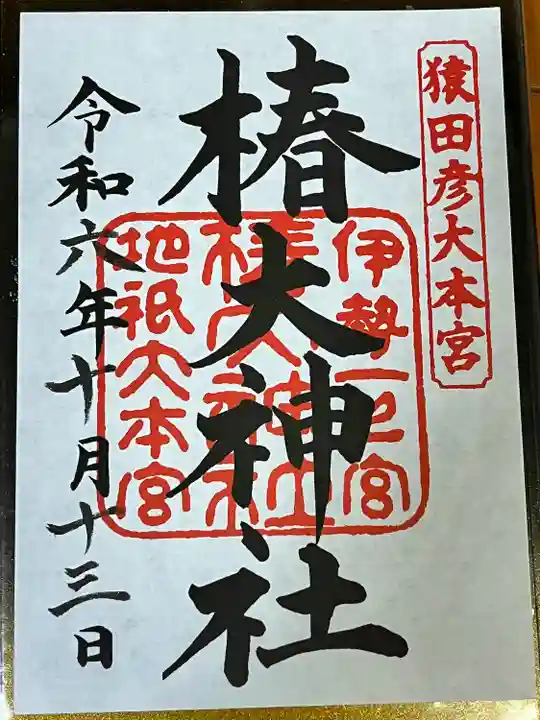 猿田彦大本宮
椿大神社
伊勢一之宮
椿大神社
地祇大本宮
令和六年十月十三日